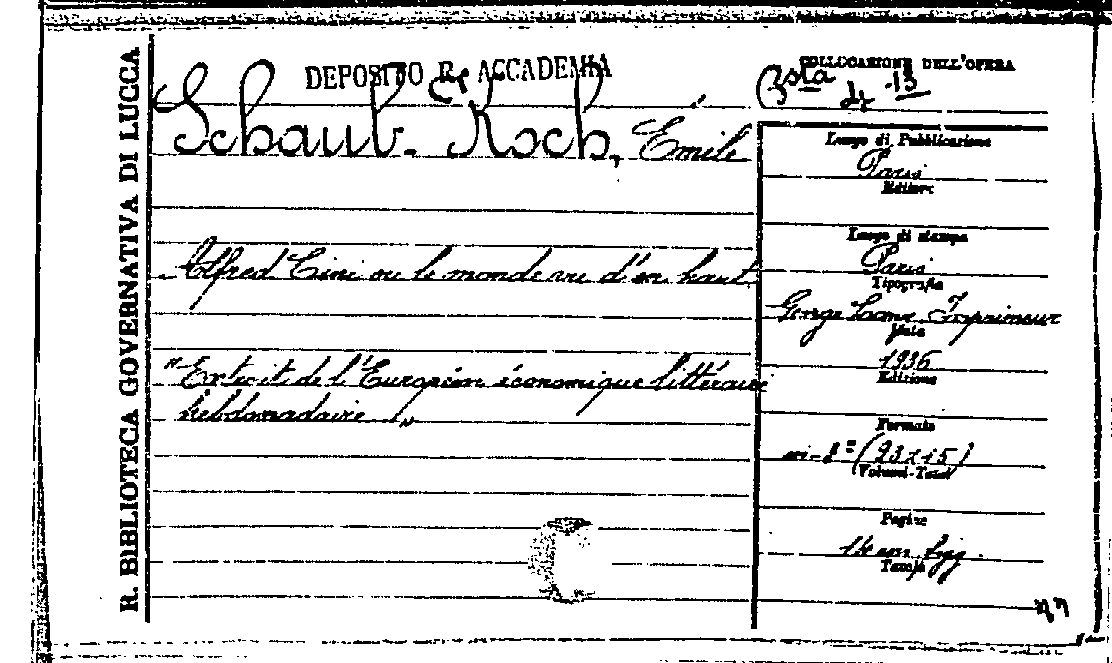 R. BIBLIOTECA GOVERNATIVA DI LUCCA
DEPOSITO R. ACCADEMIA
COLLOCAZIONE DELL'OPERA
Bsta 13
Schaub-Koch, Émile
Luogo di Pubblicazione
Paris
Editore
Luogo di stampa
Alfred Cini ou le monde vu d'en haut
Paris
Tipografia
George Imprimeur
Data
"Extrait de l'Européen économique littéraire
1936
Edizione
hebdomadaire"
Formato
in-8° (23x15)
Volumi-Tomi
Pagine
14 con figg.
Tavole